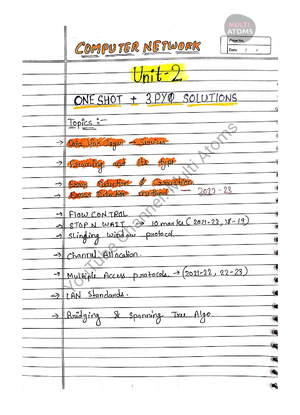 MULTI
ATOMS
Page No.
Date / /
COMPUTER NETWORK
Unit-2
ONE SHOT + 3 PYQ SOLUTIONS
Topics :-
→ Data link layer
→ Framing and its type
→ Error Detection & Correction
→ 2022-23
→ FLOW CONTROL
→ STOP N WAIT → 10 marks (2021-22, 18-19)
→ Slinding window protocol.
→ Channel Allocation.
→ Multiple Access protocols. → (2021-22, 22-23)
→ LAN Standards.
→ Bridging & Spanning Tree Algo.
YouTube Channel: Multi Atoms